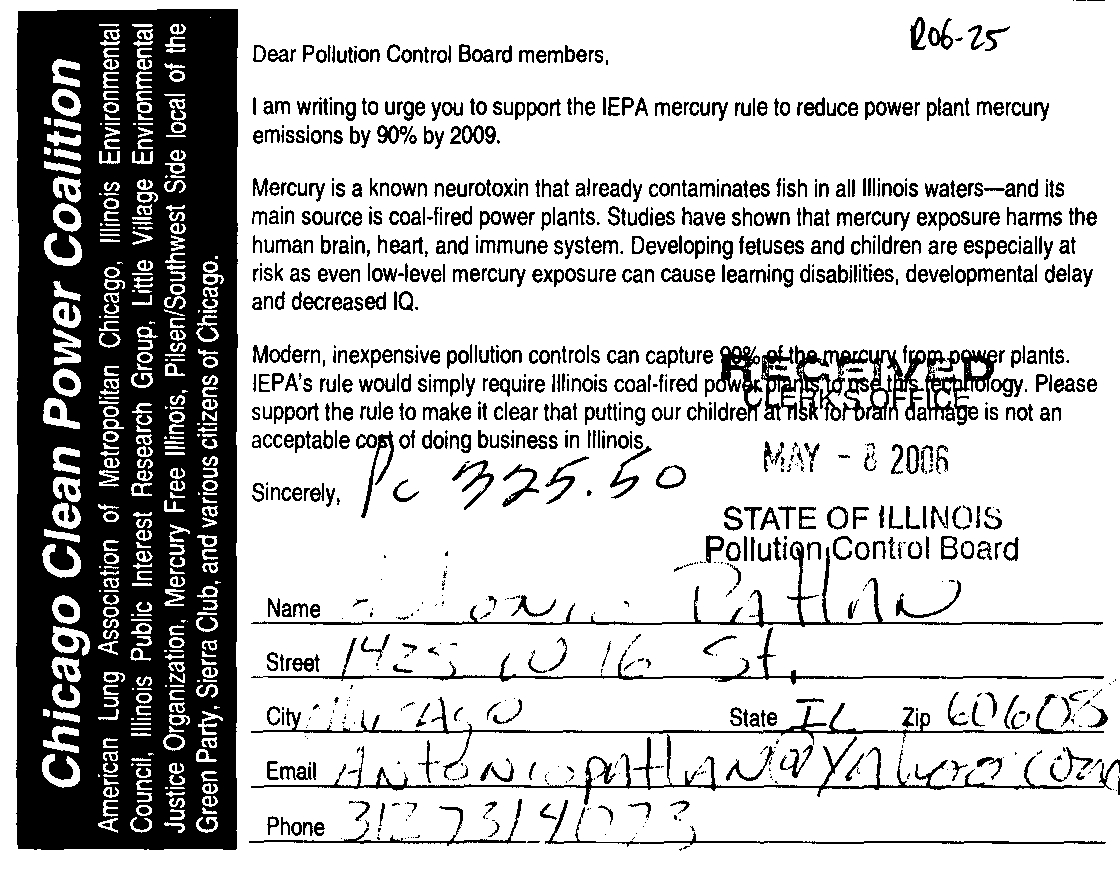 Chicago Clean Power Coalition
American Lung Association of Metropolitan Chicago, Illinois Environmental
Council, Illinois Public Interest Research Group, Little Village Environmental
Justice Organization, Mercury Free Illinois, Pilsen/Southwest Side local of the
Green Party, Sierra Club, and various citizens of Chicago.
R06-25
Dear Pollution Control Board members,
I am writing to urge you to support the IEPA mercury rule to reduce power plant mercury
emissions by 90% by 2009.
Mercury is a known neurotoxin that already contaminates fish in all Illinois waters—and its
main source is coal-fired power plants. Studies have shown that mercury exposure harms the
human brain, heart, and immune system. Developing fetuses and children are especially at
risk as even low-level mercury exposure can cause learning disabilities, developmental delay
and decreased IQ.
Modern, inexpensive pollution controls can capture 90% of the mercury from power plants.
IEPA's rule would simply require Illinois coal-fired power plants to use this technology. Please
support the rule to make it clear that putting our children at risk for brain damage is not an
acceptable cost of doing business in Illinois.
RECEIVED
CLERK'S OFFICE
MAY - 8 2006
STATE OF ILLINOIS
Pollution Control Board
Sincerely, Pc 325.50
Name Antonio Patlan
Street 1425 W 16 St.
City Chicago State IL Zip 60608
Email Antoniopatlan@Yahoo.com
Phone 312 731 4073